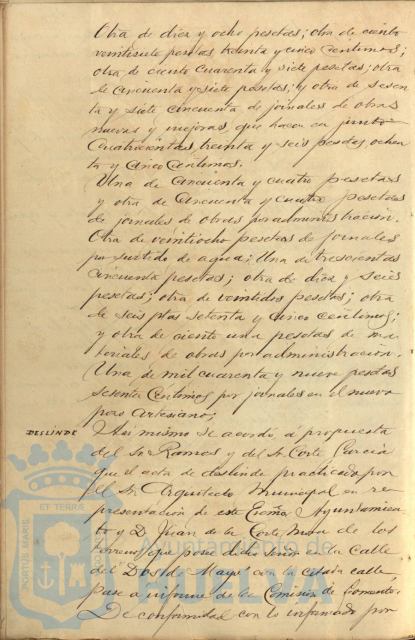 Otra de diez y ocho pesetas; otra de ciento
veintisiete pesetas treinta y cinco centimos;
otra de ciento cuarenta y siete pesetas; otra
de cincuenta y siete pesetas; y otra de sesen
ta y siete cincuenta de jornales de obras
nuevas y mejoras que hacen en junto
Cuatrocientas treinta y seis pesetas ochen
ta y cinco centimos.
Una de cincuenta y cuatro pesetas
y otra de cincuenta y cuatro pesetas
de jornales de obras por administracion.
Otra de veintiocho pesetas de jornales
por surtido de agua; Una de trescientas
cincuenta pesetas; otra de diez y seis
pesetas; otra de veintidos pesetas; otra
de seis ptas setenta y cinco centimos;
y otra de ciento una pesetas de ma
teriales de obras por administracion.
Una de mil cuarenta y nueve pesetas
setenta centimos por jornales en el nuevo
pozo Artesiano;
DESLINDE
Asi mismo se acordó, á propuesta
del Sr Ramos y del Sr Corte Garcia
que el acta de deslinde practicada por
el Sr Arquitecto Municipal en re
presentacion de este Excmo Ayuntamien
to y D. Juan de la Corte de los
terrenos que posee dicho Señor en la Calle
del "Dos de Mayo" con la citada calle,
pase a informe de la Comision de Fomento.
De conformidad con lo informado por
PORTUS MARIS
ET TERRÆ
Ayuntamiento de
HUELVA